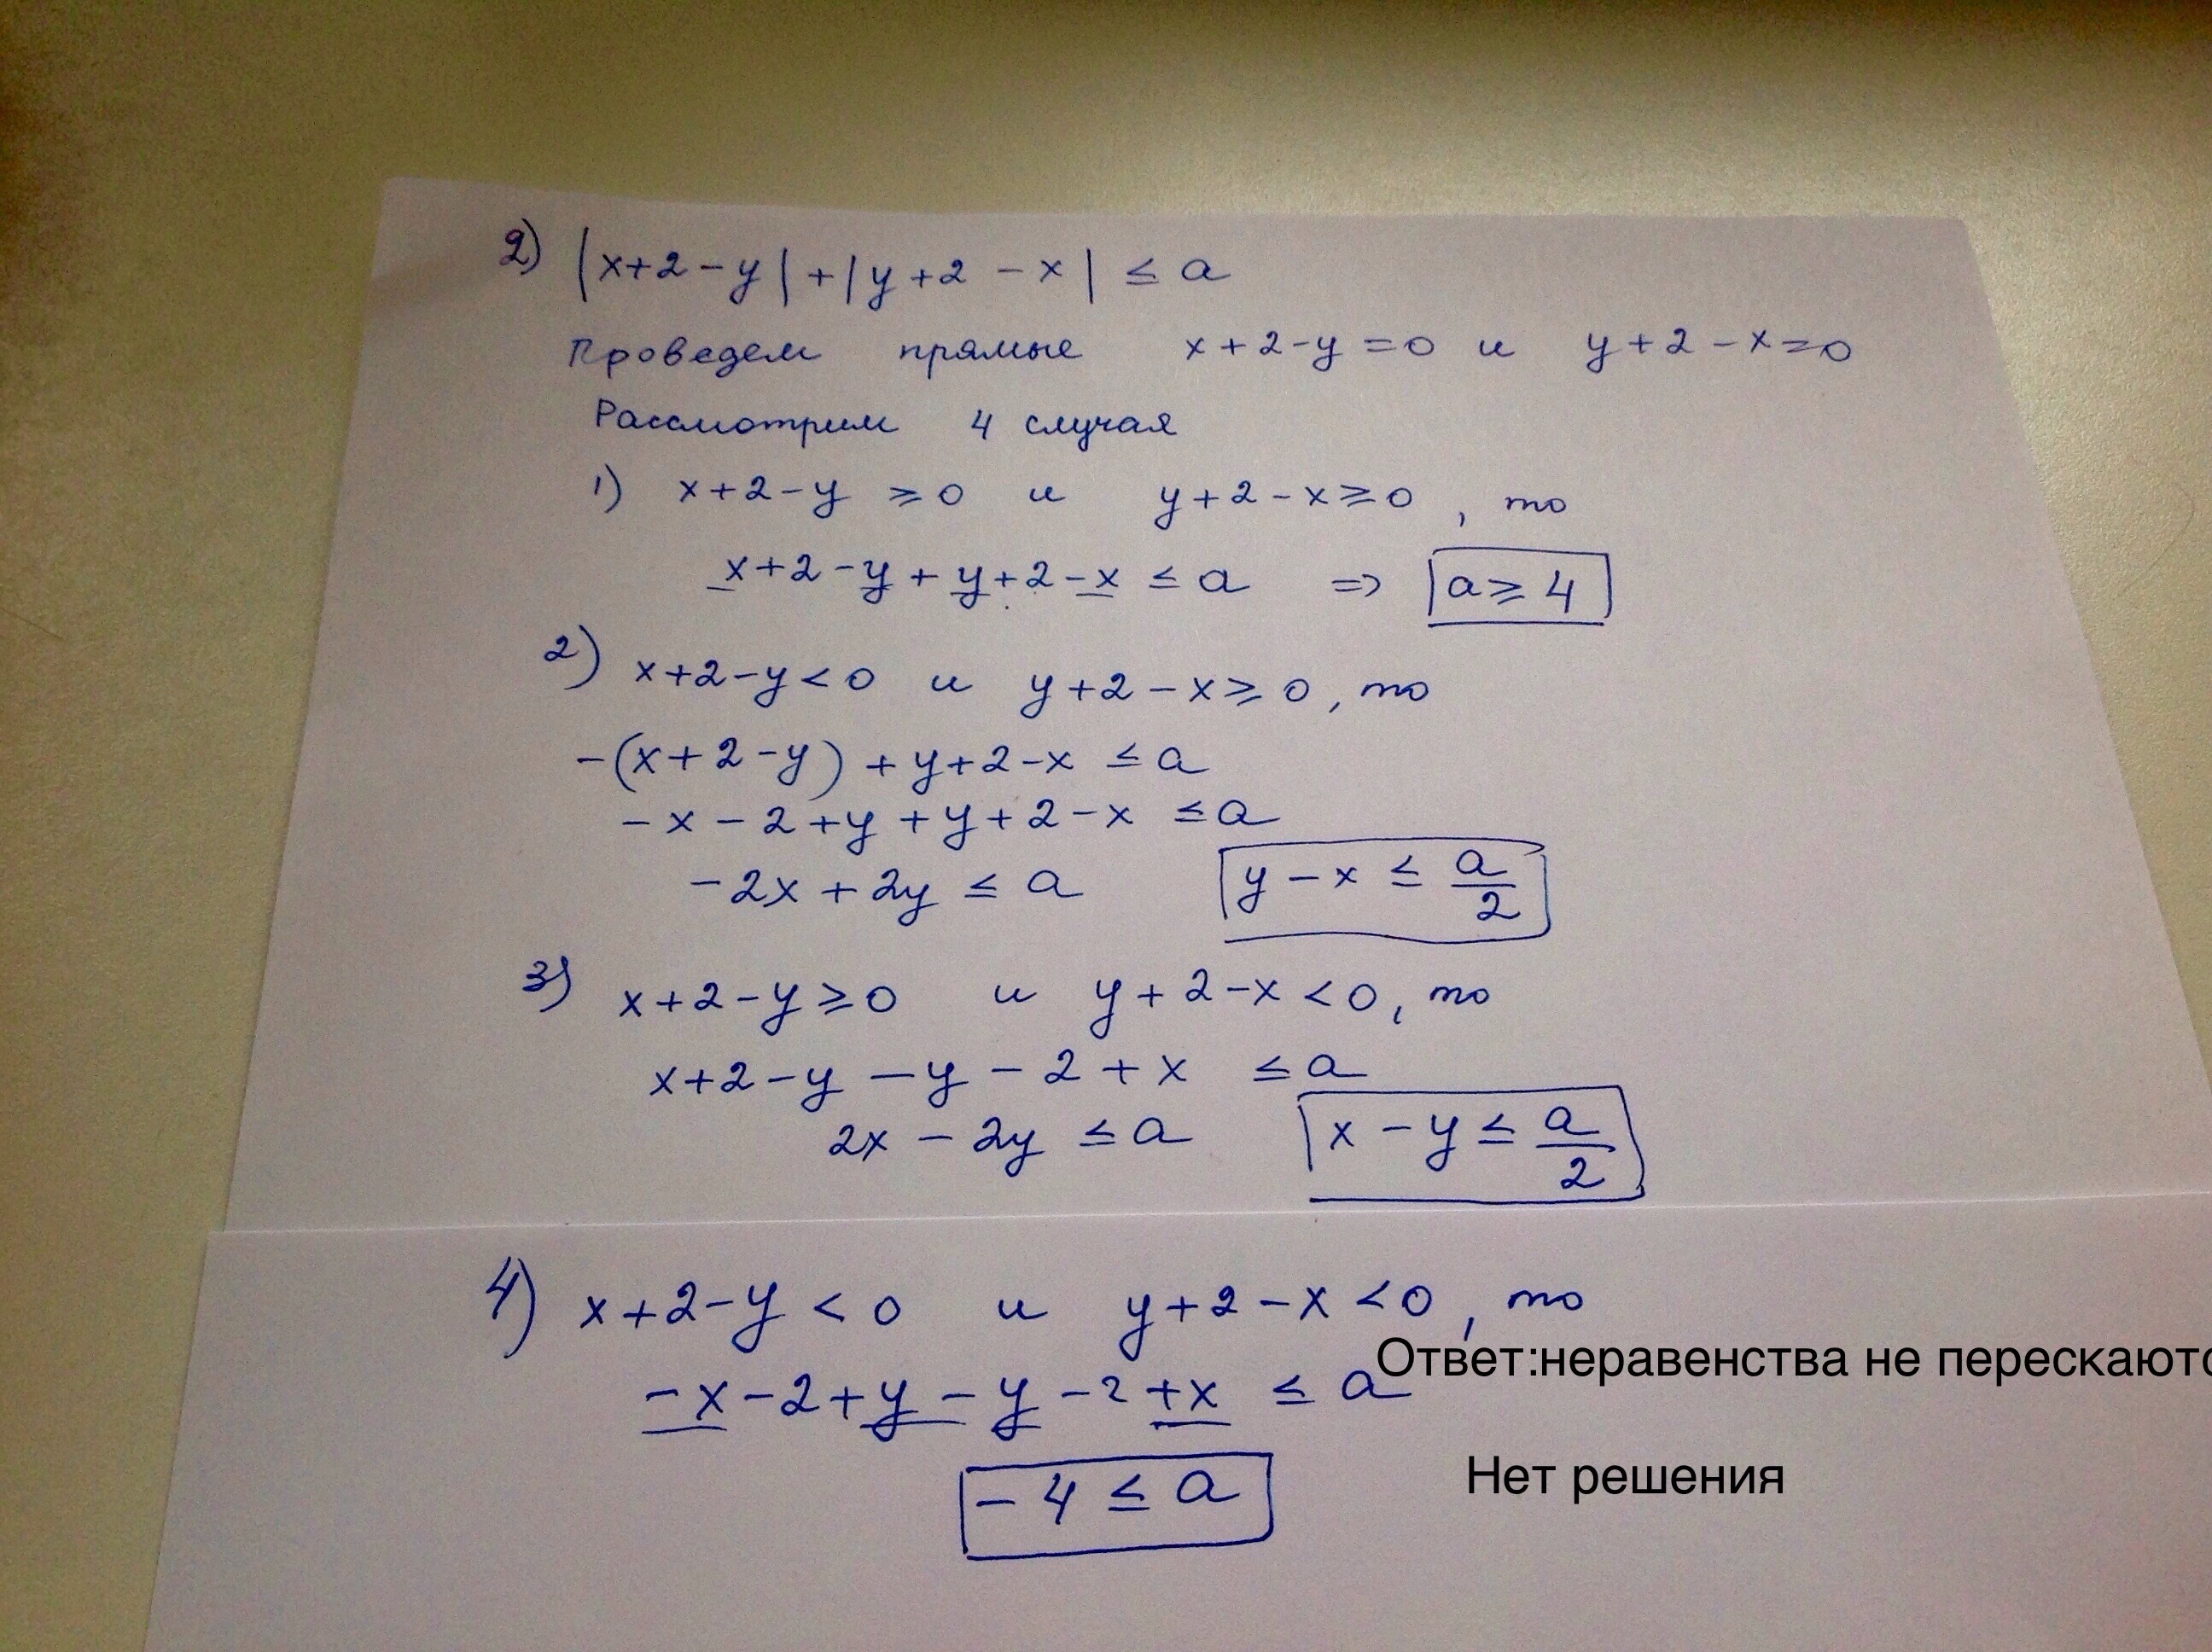 2) |x+2-y|+|y+2-x| ≤ a
Проведем прямые x+2-y=0 и y+2-x=0
Рассмотрим 4 случая
1) x+2-y ≥0 и y+2-x≥0, то
x+2-y+y+2-x ≤ a => a≥4
2) x+2-y<0 и y+2-x≥0, то
-(x+2-y)+y+2-x ≤a
-x-2+y+y+2-x ≤a
-2x+2y ≤ a y-x ≤ a/2
3) x+2-y≥0 и y+2-x<0, то
x+2-y-y-2+x ≤a
2x-2y ≤a x-y ≤ a/2
4) x+2-y<0 и y+2-x<0, то
Ответ:неравенства не перескаютс
-x-2+y-y-2+x ≤ a
Нет решения
-4 ≤ a